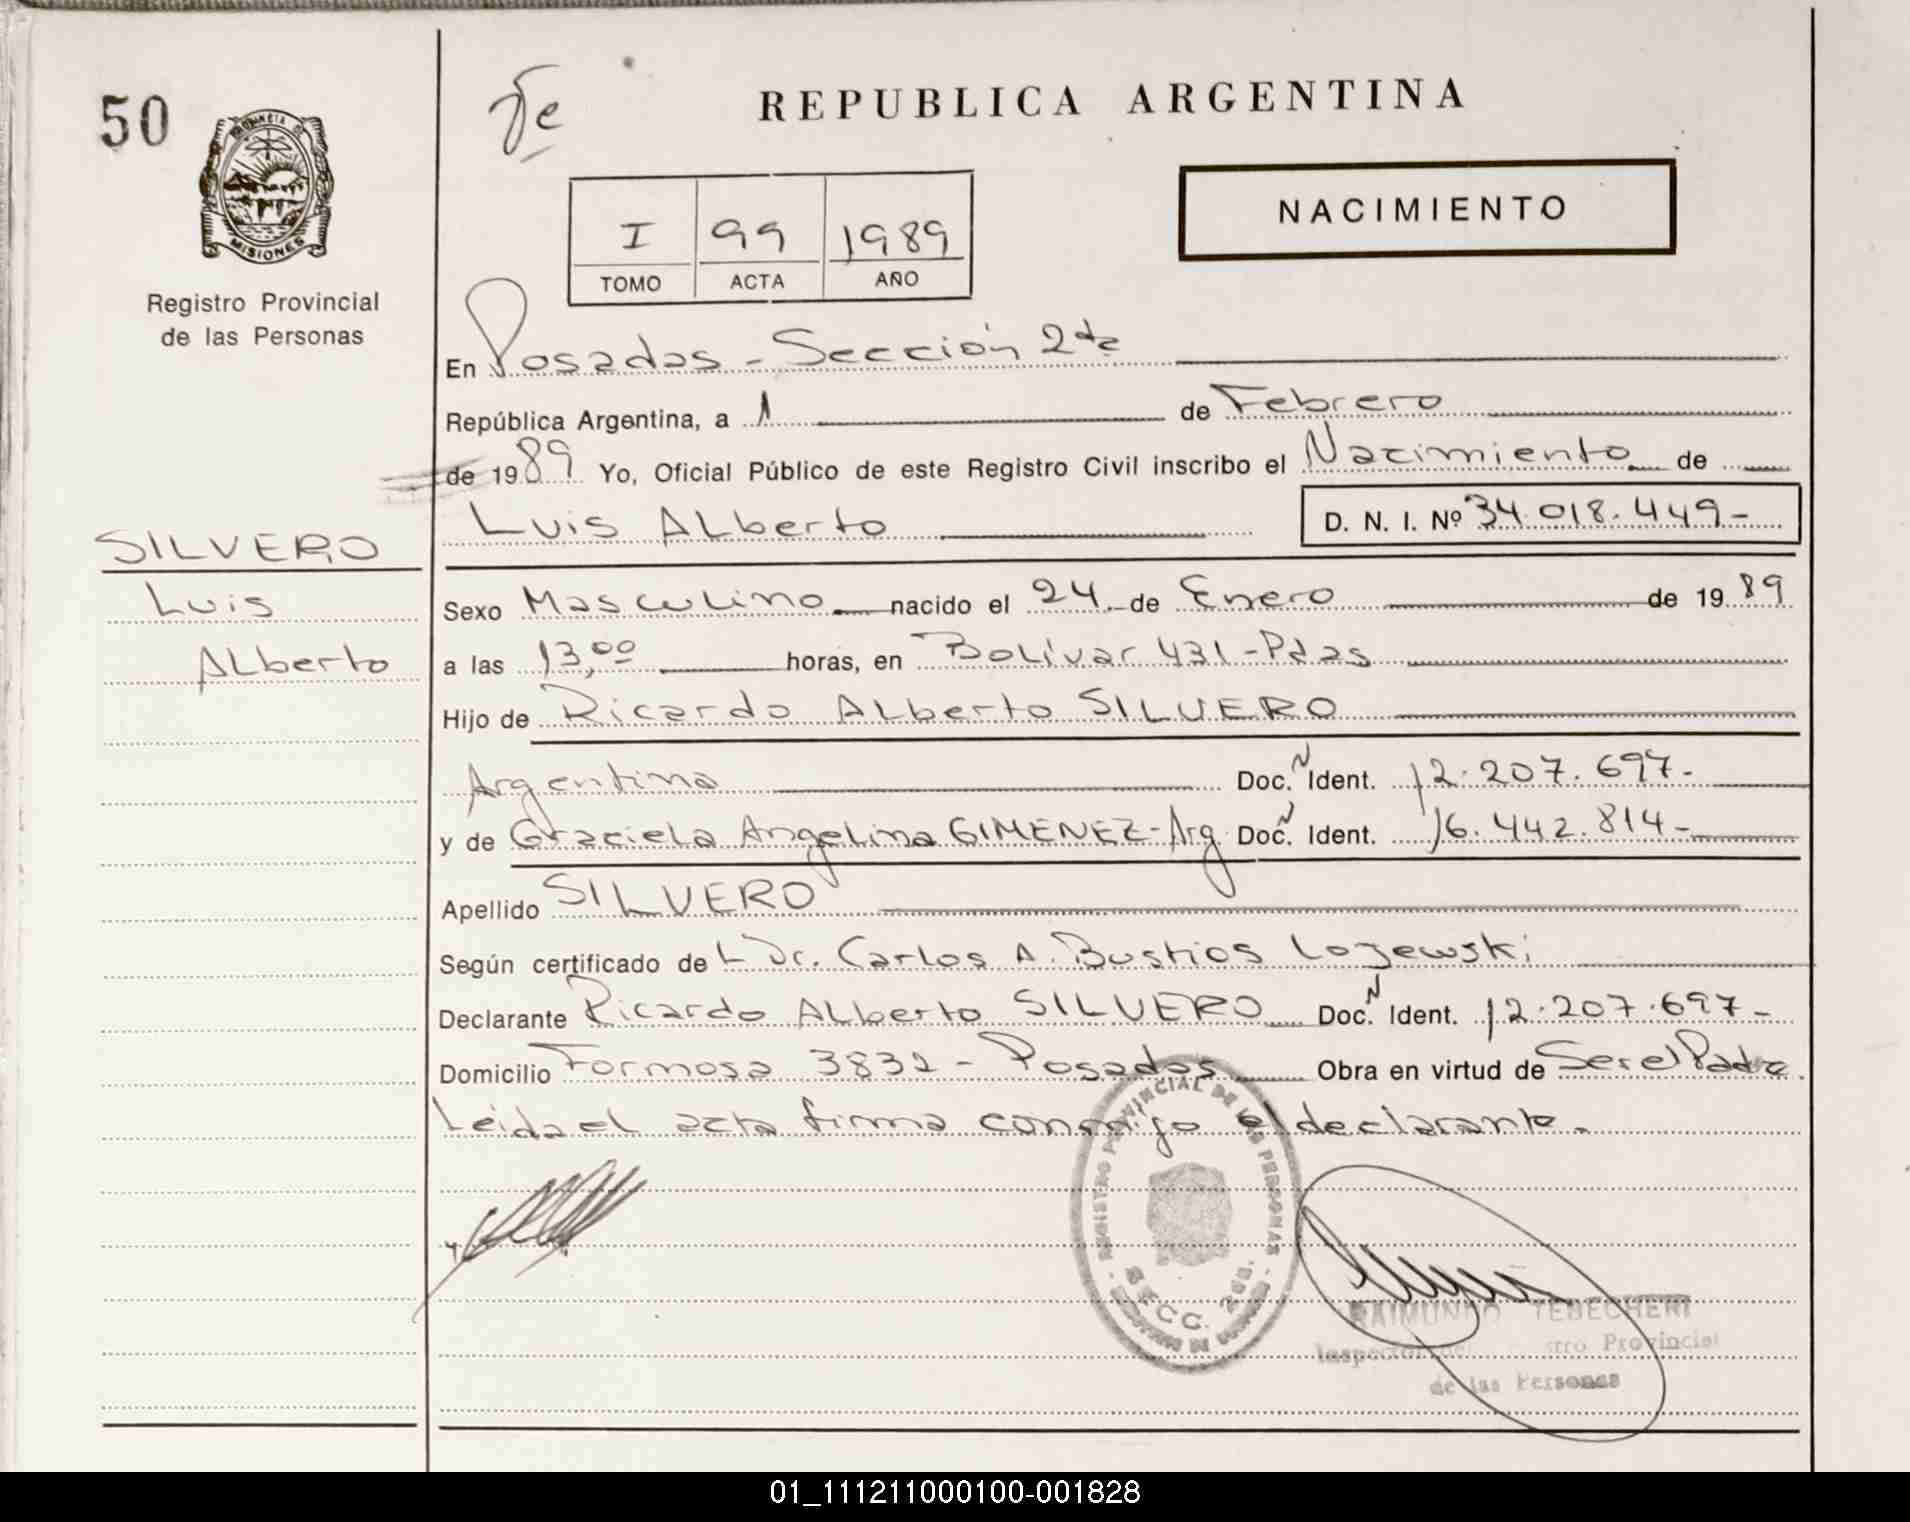 50
PROVINCIA DE
MISIONES
Registro Provincial
de las Personas
SILVERO
Luis
Alberto
REPUBLICA ARGENTINA
NACIMIENTO
I 99 1989
TOMO ACTA AÑO
En Posadas - Sección 2da
República Argentina, a 1 de Febrero
de 1989 Yo, Oficial Público de este Registro Civil inscribo el Nacimiento de
Luis ALberto D. N. I. Nº 34.018.449-
Sexo Masculino nacido el 24 de Enero de 1989
a las 13,00 horas, en Bolívar 431-Pdas
Hijo de Ricardo ALberto SILVERO
Argentina Doc. N Ident. 12.207.697-
y de Graciela Angelina GIMENEZ-Arg Doc. N Ident. 16.442.814-
Apellido SILVERO
Según certificado de L Dr. Carlos A. Bustios
Declarante Ricardo ALberto SILVERO Doc. N Ident. 12.207.697-
Domicilio Formosa 3832 - Posadas Obra en virtud de Ser el Padre
Leida el acta firma conmigo el declarante.
REGISTRO PROVINCIAL DE LAS PERSONAS
SECC. 2da.
RAIMUNDO TEBECHERI
Inspector del stro Provincial
de las Personas
01_111211000100-001828